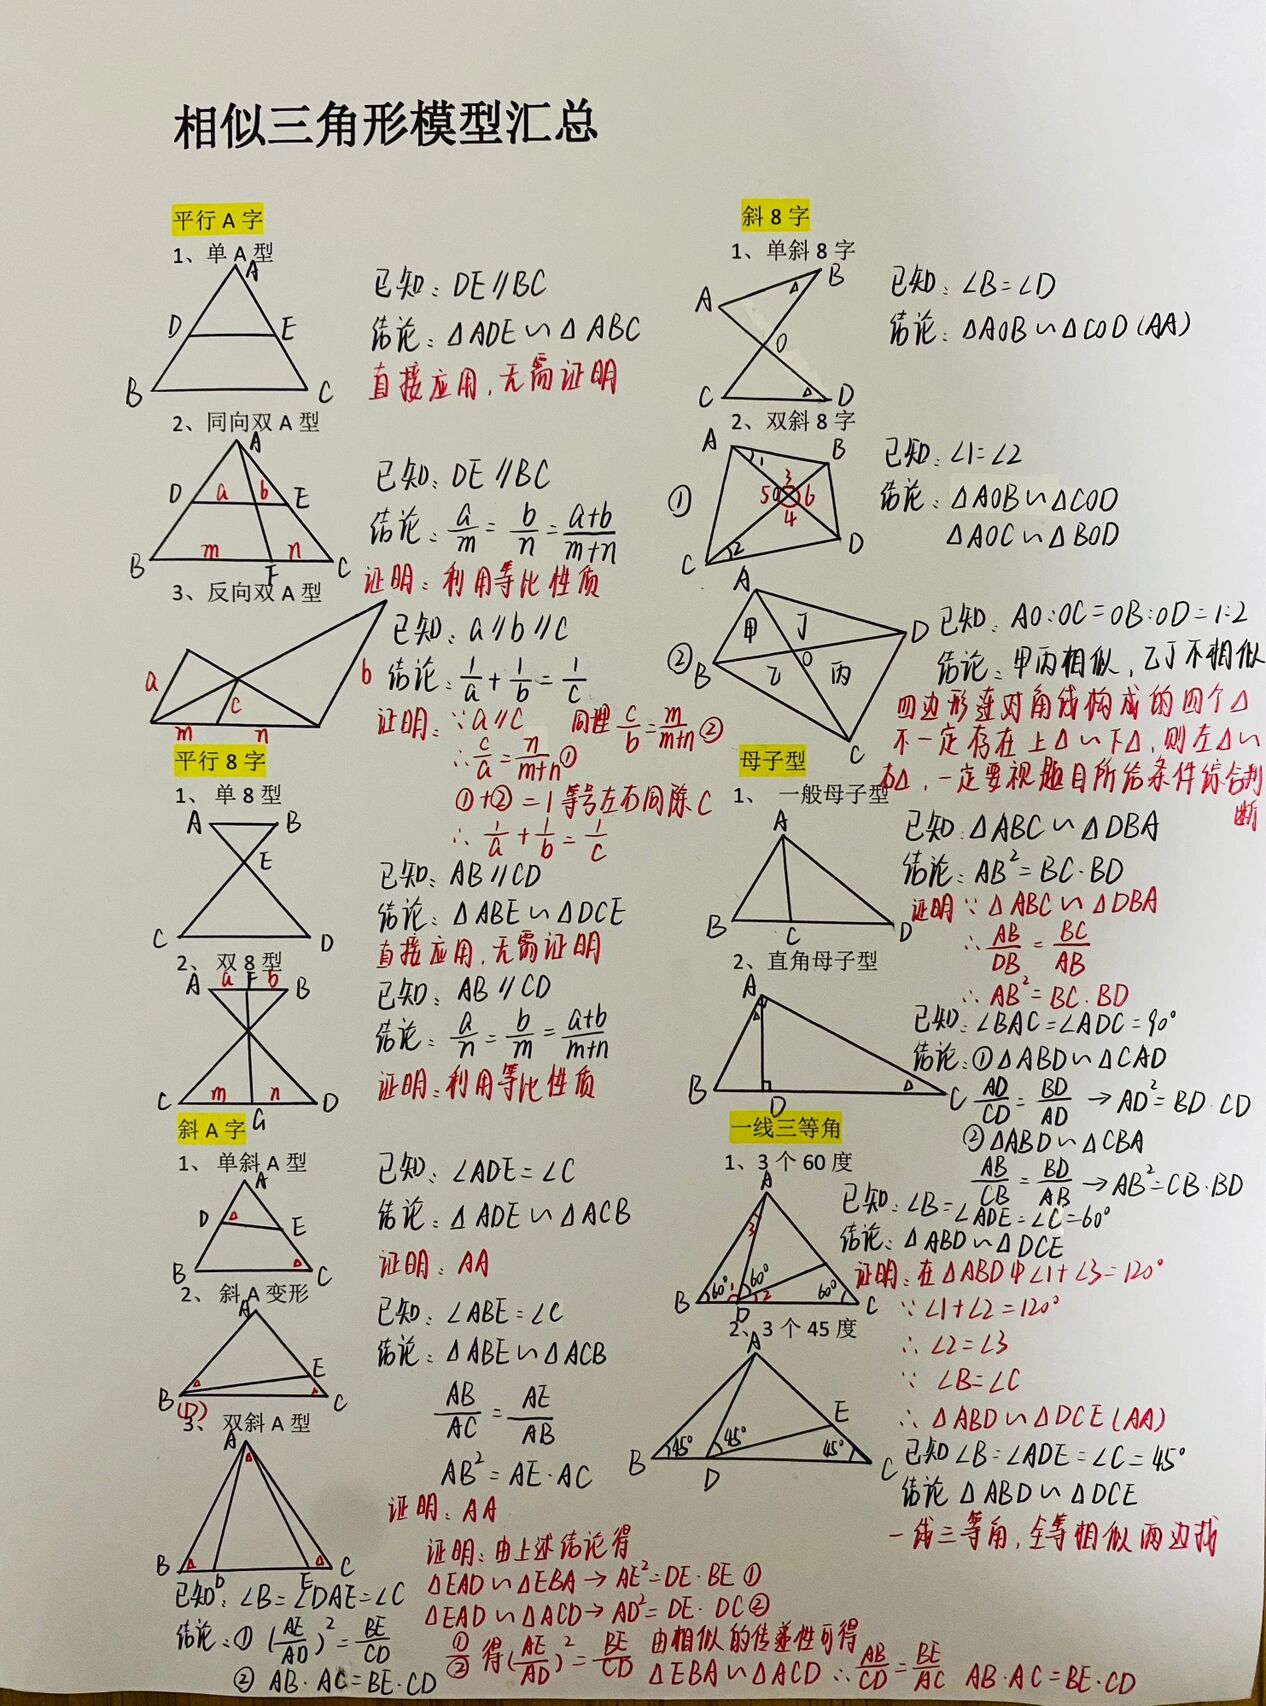 相似三角形模型汇总
平行 A 字
1、单 A 型
A
D E
B C
已知: DE∥BC
结论: △ADE∽△ABC
直接应用,无需证明
2、同向双 A 型
A
D a b E
B m F n C
已知: DE∥BC
结论: a/m = b/n = (a+b)/(m+n)
证明: 利用等比性质
3、反向双 A 型
a c b
m n
已知: a∥b∥c
结论: 1/a + 1/b = 1/c
证明: ∵a∥c 同理 c/b = m/(m+n) ②
∴ c/a = n/(m+n) ①
①+② =1 等号左右同除c
∴ 1/a + 1/b = 1/c
平行 8 字
1、 单 8 型
A B
E
C D
已知: AB∥CD
结论: △ABE∽△DCE
直接应用,无需证明
2、 双 8 型
A a F b B
C m G n D
已知: AB∥CD
结论: a/n = b/m = (a+b)/(m+n)
证明: 利用等比性质
斜 A 字
1、 单斜 A 型
A
D E
B C
已知: ∠ADE=∠C
结论: △ADE∽△ACB
证明: AA
2、 斜 A 变形
A
E
B C
(D)
已知: ∠ABE=∠C
结论: △ABE∽△ACB
AB/AC = AE/AB
AB²=AE·AC
证明: AA
3、 双斜 A 型
A
B D E C
已知: ∠B=∠DAE=∠C
结论: ① (AE/AD)² = BE/CD
② AB·AC=BE·CD
证明: 由上述结论得
△EAD∽△EBA→AE²=DE·BE ①
△EAD∽△ACD→AD²=DE·DC ②
①/② 得 (AE/AD)² = BE/CD 由相似的传递性可得
△EBA∽△ACD ∴ AB/CD = BE/AC AB·AC=BE·CD
斜 8 字
1、单斜 8 字
A B
O
C D
已知: ∠B=∠D
结论: △AOB∽△COD(AA)
2、双斜 8 字
①
A 1 B
3
5 O 6
4
C 2 D
已知: ∠1=∠2
结论: △AOB∽△COD
△AOC∽△BOD
②
A
甲 丁 D
B 乙 O 丙
C
已知: AO:OC=OB:OD=1:2
结论: 甲丙相似,乙丁不相似
四边形连对角线构成的四个△
不一定存在上△∽下△,则左△∽
右△,一定要视题目所给条件综合判
断
母子型
1、 一般母子型
A
B C D
已知: △ABC∽△DBA
结论: AB²=BC·BD
证明 ∵△ABC∽△DBA
∴ AB/DB = BC/AB
∴AB²=BC·BD
2、直角母子型
A
B D C
已知: ∠BAC=∠ADC=90°
结论: ①△ABD∽△CAD
AD/CD = BD/AD → AD²=BD·CD
②△ABD∽△CBA
AB/CB = BD/AB → AB²=CB·BD
一线三等角
1、3 个 60 度
A
3
B 60° 1 60° 2 60° C
D
已知: ∠B=∠ADE=∠C=60°
结论: △ABD∽△DCE
证明: 在△ABD中∠1+∠3=120°
∵∠1+∠2=120°
∴∠2=∠3
∵ ∠B=∠C
∴△ABD∽△DCE(AA)
2、3 个 45 度
A
E
B 45° 45° 45° C
D
已知∠B=∠ADE=∠C=45°
结论 △ABD∽△DCE
一线三等角,全等相似两边找